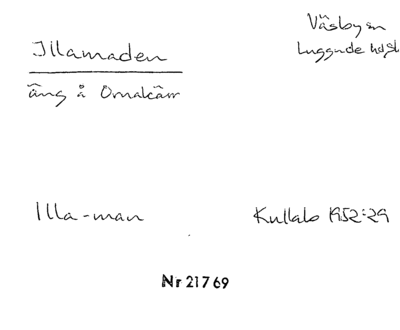 Väsby sn
Luggude hd, Sk
Illamaden
äng å Ornakärr
Illa-man
Kullabo 1952:29
Nr 21769